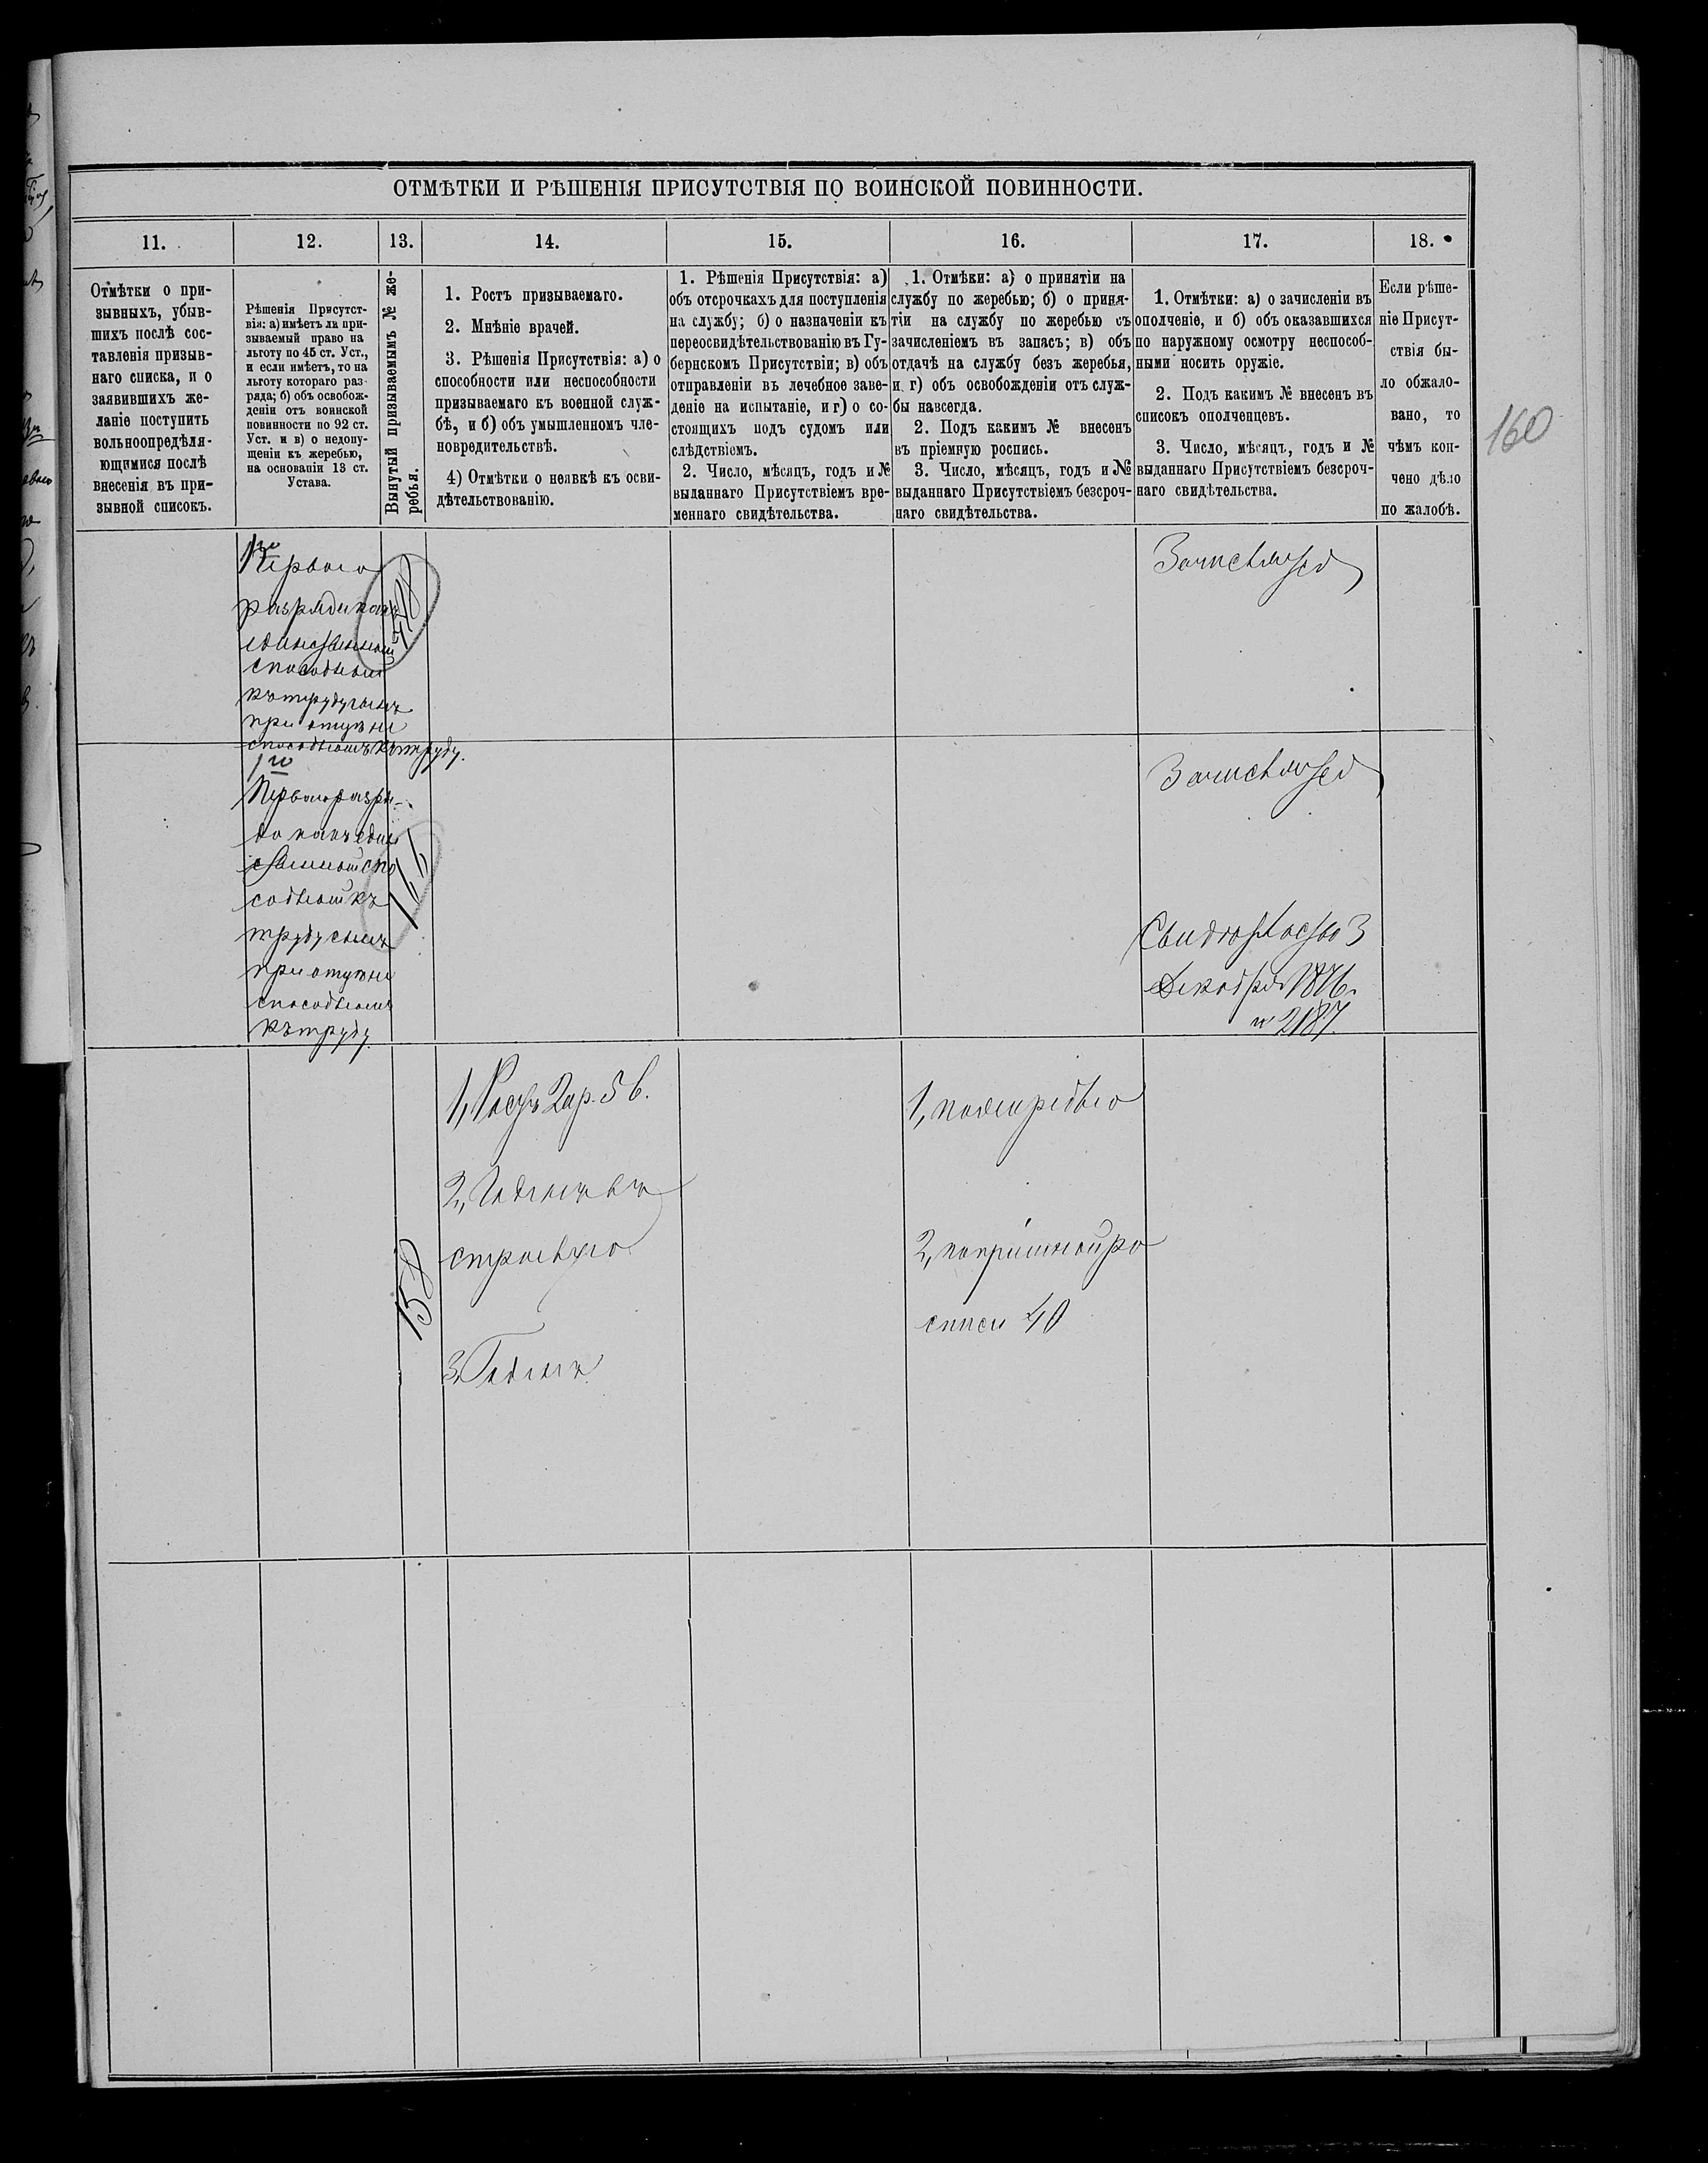 ОТМѢТКИ И РѢШЕНІЯ ПРИСУТСТВІЯ ПО ВОИНСКОЙ ПОВИННОСТИ.
11.
12.
13.
14.
15.
16.
17.
18.
Отмѣтки о при-
зывныхъ, убыв-
шихъ послѣ сос-
тавленія призыв-
наго списка, и о
заявившихъ же-
ланіе поступить
вольноопредѣля-
ющимися послѣ
внесенія въ при-
зывной списокъ.
Рѣшенія Присутст-
вія: а) имѣетъ ли при-
зываемый право на
льготу по 45 ст. Уст.,
и если имѣетъ, то на
льготу котораго раз-
ряда; б) объ освобож-
деніи отъ воинской
повинности по 92 ст.
Уст. и в) о недопу-
щеніи къ жеребью,
на основаніи 13 ст.
Устава.
Вынутый призываемымъ № же-
ребья.
1. Ростъ призываемаго.
2. Мнѣніе врачей.
3. Рѣшенія Присутствія: а) о
способности или неспособности
призываемаго къ военной служ-
бѣ, и б) объ умышленномъ чле-
новредительствѣ.
4) Отмѣтки о неявкѣ къ осви-
дѣтельствованію.
1. Рѣшенія Присутствія: а)
объ отсрочкахъ для поступленія
на службу; б) о назначеніи къ
переосвидѣтельствованію въ Гу-
бернскомъ Присутствіи; в) объ
отправленіи въ лечебное заве-
деніе на испытаніе, и г) о со-
стоящихъ подъ судомъ или
слѣдствіемъ.
2. Число, мѣсяцъ, годъ и №
выданнаго Присутствіемъ вре-
меннаго свидѣтельства.
1. Отмѣки: а) о принятіи на
службу по жеребью; б) о приня-
тіи на службу по жеребью съ
зачисленіемъ въ запасъ; в) объ
отдачѣ на службу безъ жеребья,
и г) объ освобожденіи отъ служ-
бы навсегда.
2. Подъ какимъ № внесенъ
въ пріемную роспись.
3. Число, мѣсяцъ, годъ и №
выданнаго Присутствіемъ безсроч-
наго свидѣтельства.
1. Отмѣтки: а) о зачисленіи въ
ополченіе, и б) объ оказавшихся
по наружному осмотру неспособ-
ными носить оружіе.
2. Подъ какимъ № внесенъ въ
списокъ ополченцевъ.
3. Число, мѣсяцъ, годъ и №
выданнаго Присутствіемъ безсроч-
наго свидѣтельства.
Если рѣше-
ніе Присут-
ствія бы-
ло обжало-
вано, то
чѣмъ кон-
чено дѣло
по жалобѣ.
160
1го
Перваго
разряда какъ
единственный
способный
къ труду сынъ
при отцѣ не
способномъ къ труду.
Зачисляется
1го
Перваго разря-
да какъ един
ственный спо
собный къ
труду сынъ
при отцѣ не
способномъ
къ труду
166
Зачисляется
Свидѣтельство 3
Декабря 1876.
№ 2187.
158
1, Ростъ 2 ар. 5 в.
2, Годенъ въ
строевую
3, Годенъ
1, по жеребью
2, по пріемной ро
списи 40